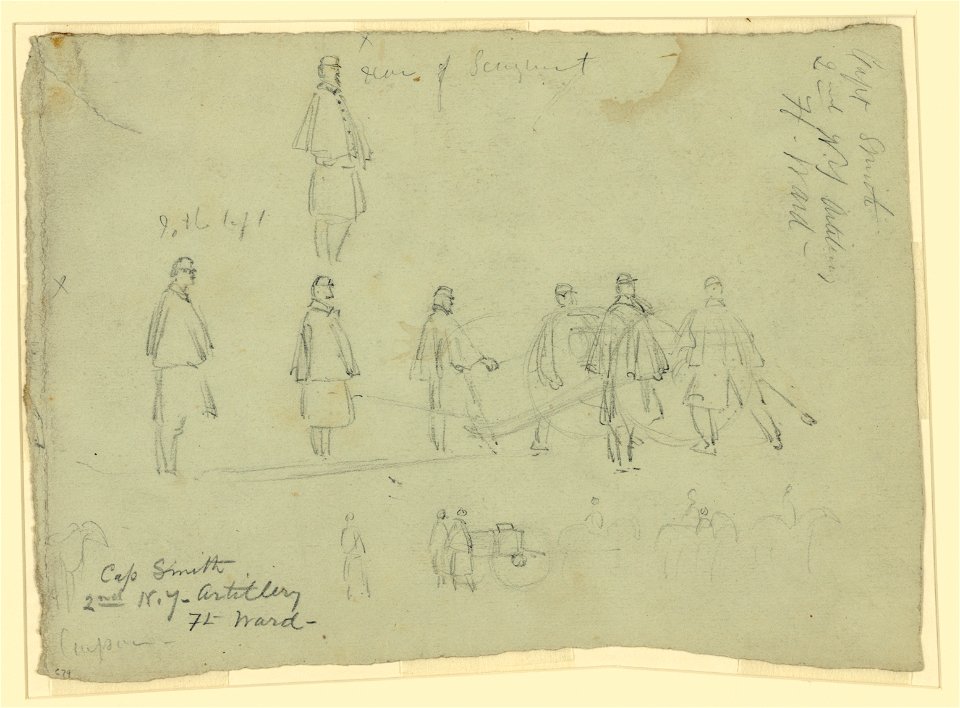 rear of Sergeant
Capt Smith
2nd N.Y Artillery
Ft. Ward -
To the left
Cap Smith
2nd N.Y- Artillery
Ft Ward-